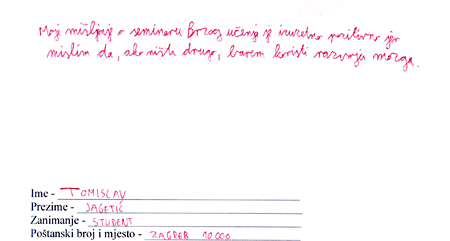 Moje mišljenje o seminaru Brzog učenja je izuzetno pozitivno jer
mislim da, ako ništa drugo, barem koristi razvoju mozga.
Ime - TOMISLAV
Prezime - JAGETIĆ
Zanimanje - STUDENT
Poštanski broj i mjesto - ZAGREB 10000